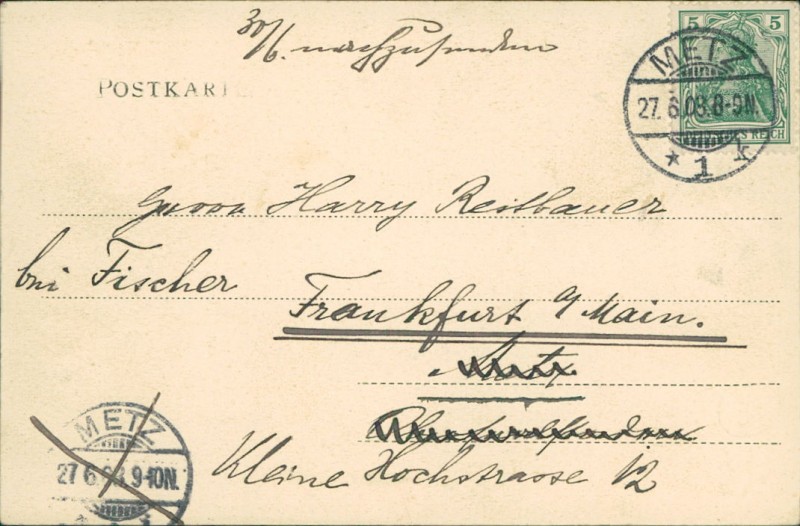 30/6. nachzusenden
5 5
METZ
27. 6.08.8-9N.
REICH
* 1 k
POSTKARTE
Herrn Harry Reitbauer
bei Fischer
Frankfurt a/Main.
Metz
Kleine Hochstrasse 12
METZ
27 6 9-10N.